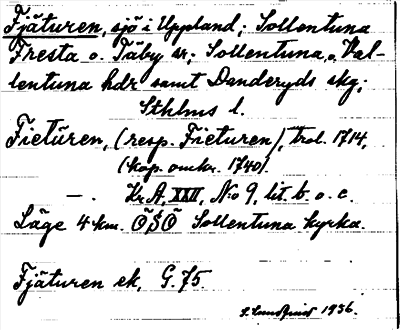 Fjäturen, sjö i Uppland; Sollentuna
Fresta o. Täby sr; Sollentuna, o. Val-
lentuna hdr samt Danderyds skg;
Sthlms l.
Fietŭren, (resp. Frieturen), trol. 1714,
(kop. omkr. 1740).
—. Kr. A, XXII, No 9, lit. b. o. c.
Läge 4 km. ÖSÖ Sollentuna kyrka.
Fjäturen ek, G. 75
1936.